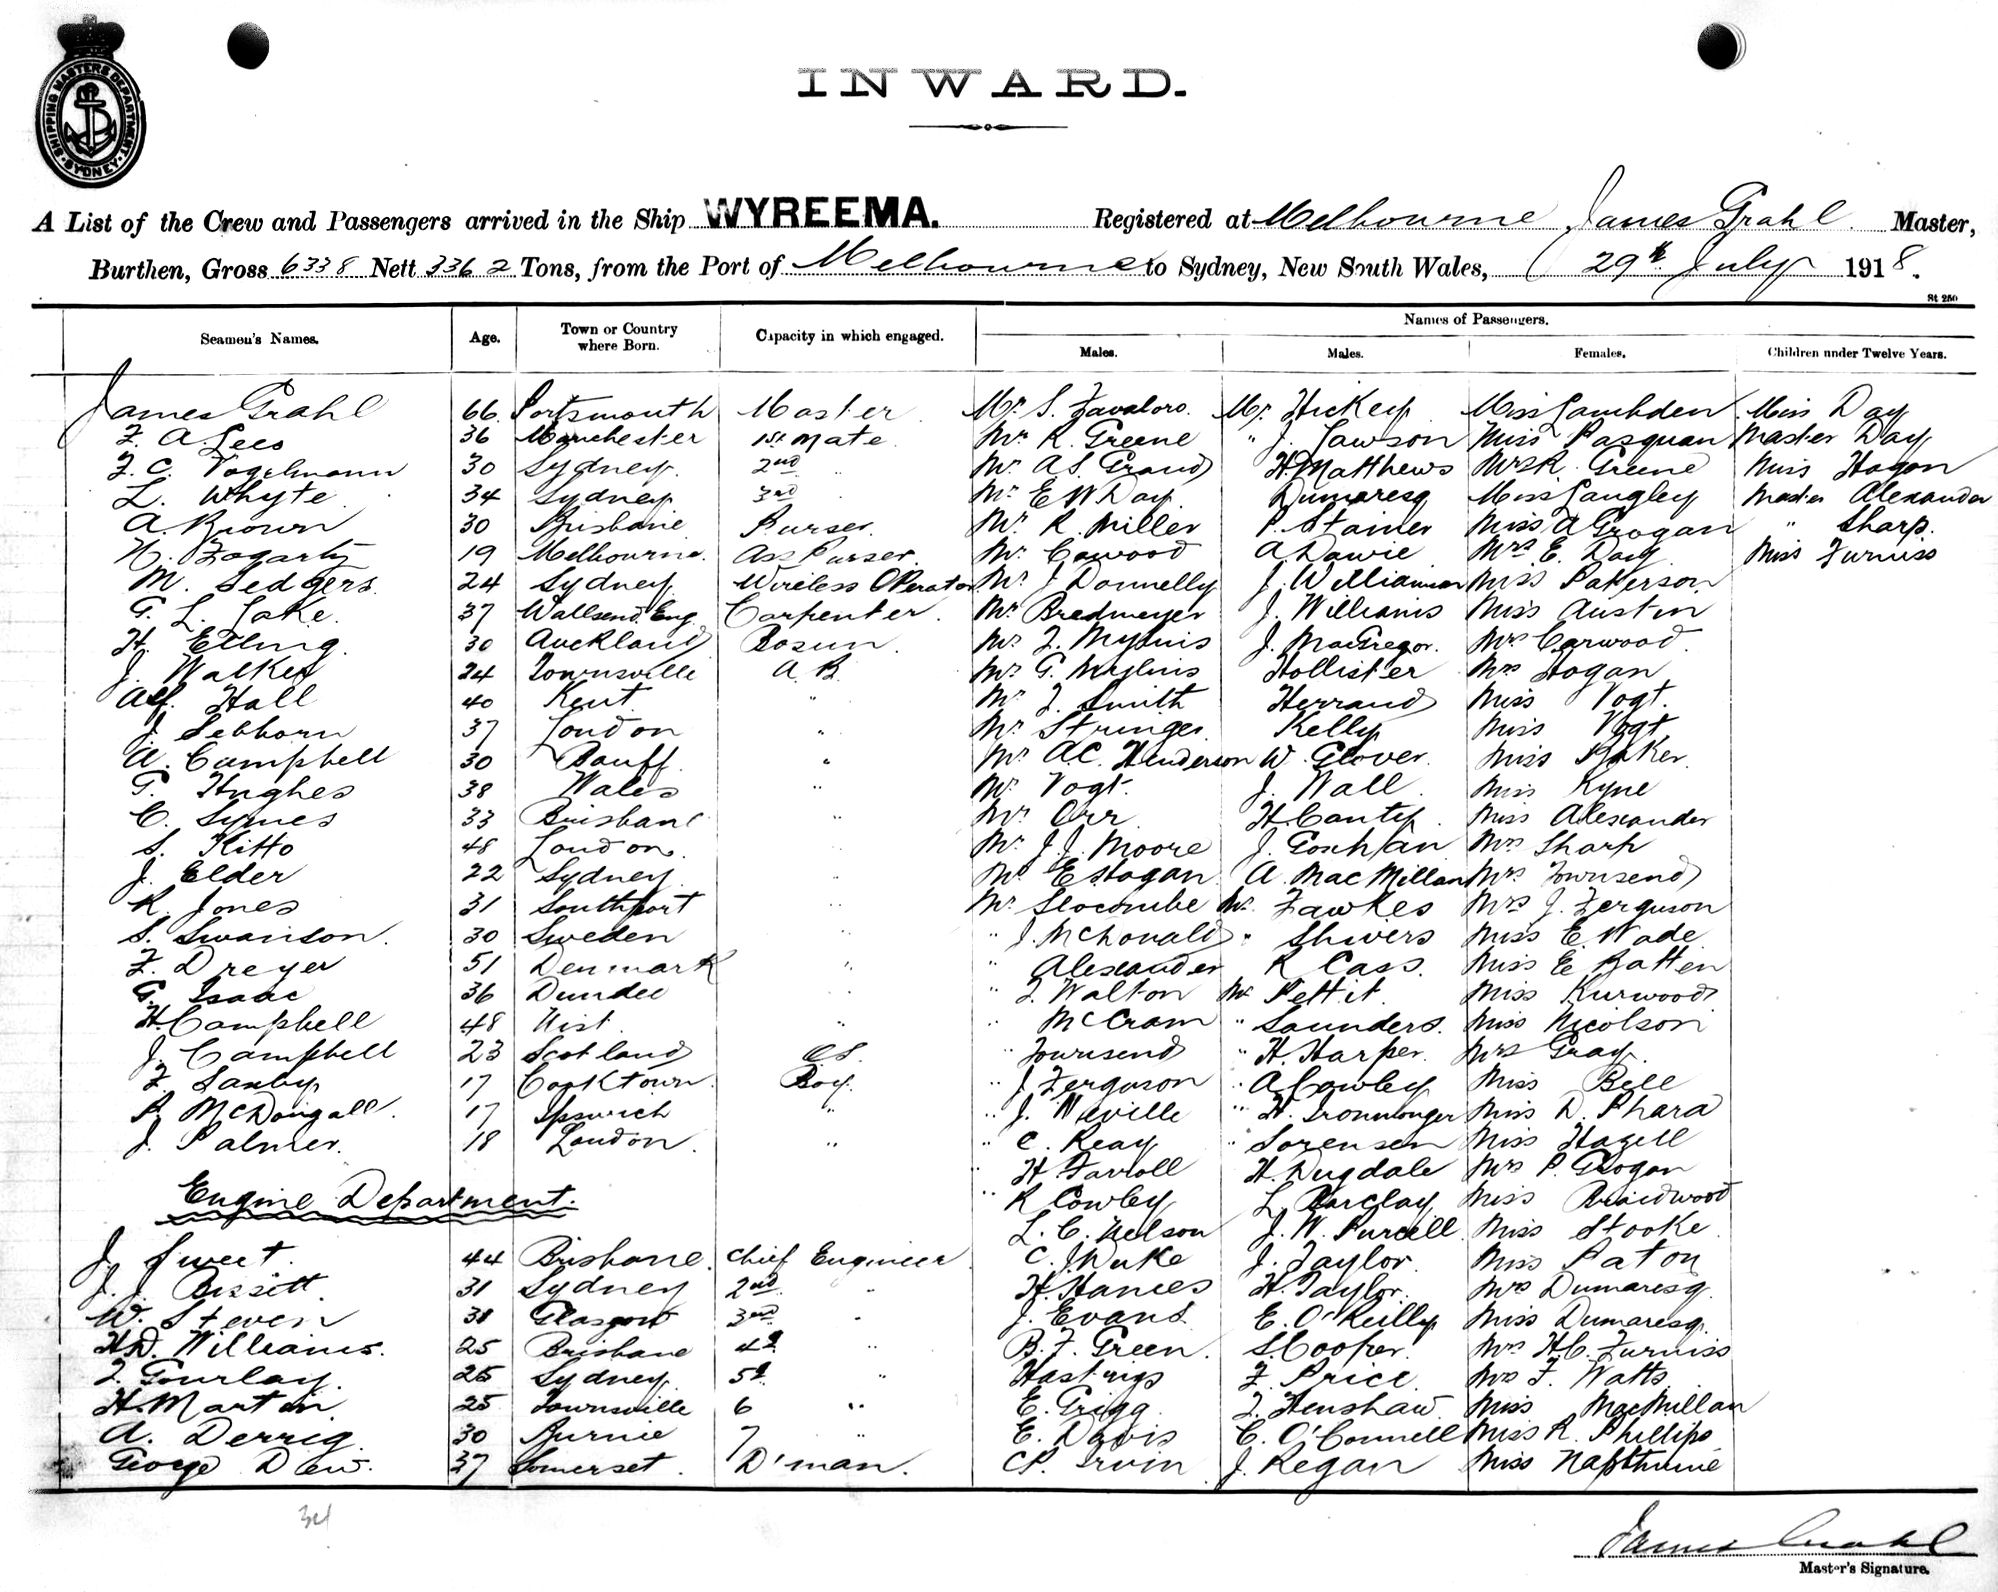 SHIPPING MASTERS DEPARTMENT · SYDNEY ·
INWARD.
A List of the Crew and Passengers arrived in the Ship WYREEMA. Registered at Melbourne James Grahl Master,
Burthen, Gross 6338 Nett 3362 Tons, from the Port of Melbourne to Sydney, New South Wales, 29th July 1918.
St 250
Seamen's Names. Age. Town or Country where Born. Capacity in which engaged. Names of Passengers.
Males. Males. Females. Children under Twelve Years.
James Grahl 66 Portsmouth Master Mr S. Favaloro. Mr. Hickey Miss Lambden Miss Day
F. A. Lees 36 Manchester 1st Mate Mr R. Greene " J. Lawson Miss Pasquan Master Day
F. C. Vogelmann 30 Sydney 2nd " Mr A S Grand H. Matthews Mrs R. Greene Miss Hogan
L. Whyte 34 Sydney 3rd " Mr E W Day Dumaresq Miss Langley Master Alexander
A. Brown 30 Brisbane Purser. Mr. R. Miller P. Stainer Miss A Grogan " Sharp.
N. Fogarty 19 Melbourne. Ass Purser. Mr Cawood A Dawie Mrs E. Day Miss Furniss
M. Sedgers. 24 Sydney Wireless Operator Mr J Donnelly J. Williamson Miss Paterson
G. L. Lake. 37 Wallsend. Eng Carpenter. Mr Bredmeyer J. Williams Miss Austin
H. Elling. 30 Auckland Bosun. Mr. F. Mylius J. MacGregor. Mrs Carwood
J. Walker 24 Townsville A. B. Mr G. Mylius Hollister Mrs Hogan
Alf. Hall 40 Kent " Mr J. Smith Herrand Miss Vogt.
J. Sebborn 37 London " Mr Stringer Kelly Miss Vogt
A. Campbell 30 Banff. " Mr A C. Henderson W. Glover. Miss Baker.
G. Hughes 38 Wales " Mr Vogt. J. Wall. Miss Kyne
C. Symes 33 Brisbane " Mr Orr H Canty. Miss Alexander
S. Kitto 48 London. " Mr J. J. Moore J. Mrs Sharp
J. Elder 22 Sydney " Mr E Hogan A. MacMillan Mrs Townsend
R. Jones 31 Southport " Mr Slocombe Mr. Fawkes Mrs J. Ferguson
S. Swanson. 30 Sweden " " J. McDonald " Shivers Miss E. Wade
F. Dreyer 51 Denmark " " Alexander R Cass. Miss E Batten
G. Isaac 36 Dundee " " J. Walton Mr Pettit. Miss Kurwood
H. Campbell 48 Uist. " " McCram " Saunders. Miss Nicolson
J. Campbell 23 Scotland O S. Townsend " H. Harper. Mrs Gray.
F. Saxby 17 Cooktown. Boy. " J. Ferguson " A Cowley Miss Bell
P. McDougall. 17 Ipswich " " J. Neville " H. Ironmonger Miss D. Phara
J. Palmer. 18 London. " " C. Reay " Sorensen Miss Hazell
" H. Farroll H. Dugdale Mrs P. Grogan
Engine Department. " R Cowley L. Barclay Miss Braidwood
L. C. Nelson J. W. Purcell Miss Stooke
J. Sweet. 44 Brisbane. Chief Engineer C. J. Wuke J. Taylor. Miss Paton
J. J. Bissett. 31 Sydney 2nd " H. Hances H. Taylor. Mrs Dumaresq.
W. Steven 38 Glasgow 3rd " J. Evans. E. O'Reilly Miss Dumaresq.
H. D. Williams. 25 Brisbane 4th " B. F. Green. S. Cooper. Mrs H. C. Furniss
J. Gourlay. 25 Sydney 5th " Hastings F. Price Mrs F. Watts
H. Martin 25 Townsville 6 " E. Grigg J. Henshaw. Miss MacMillan
A. Derrig. 30 Burnie 7 " E. Davis C. O'Connell Miss R. Phillips
George Dew. 37 Somerset. D'man. C P. Irvin J. Regan Miss Napthurine
34
James Grahl
Master's Signature.